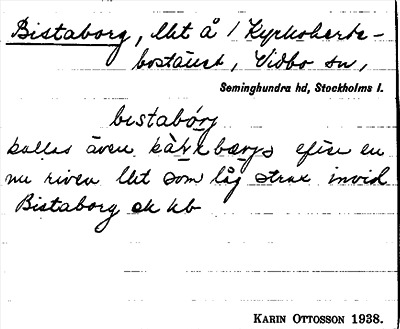 Bistaborg, lht å 1 Kyrkoherde-
boställe, Vidbo sn,
Seminghundra hd, Stockholms l.
bistabórj
kallas även efter en
nu riven lht som låg strax invid
Bistaborg
KARIN OTTOSSON 1938.